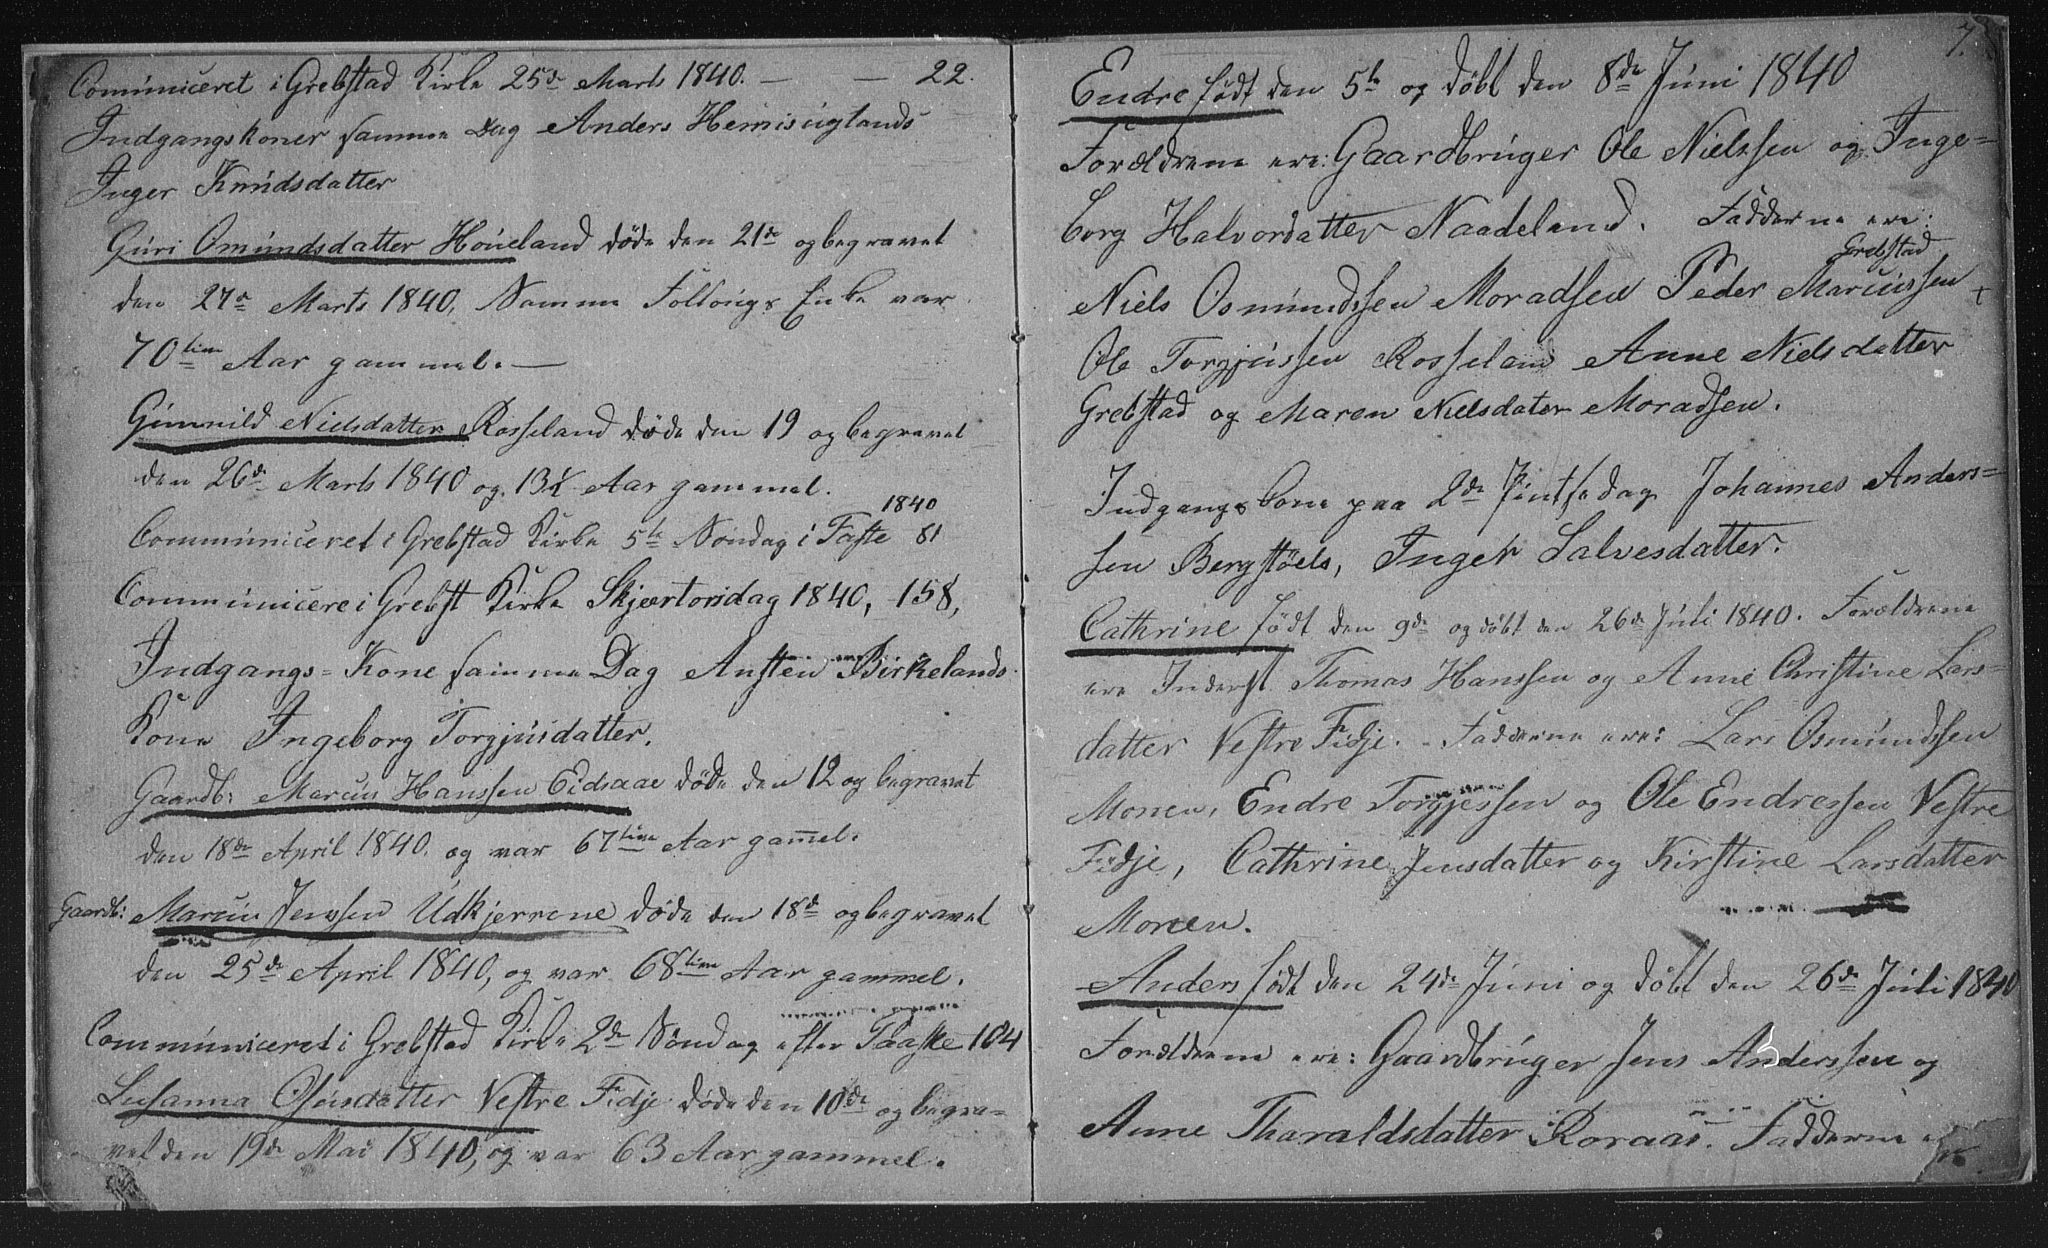 Comuniceret i Grebstad Kirke 25de Marts 1840. — — 22.
Indgangskoner samme Dag Anders Hemisuglands
Inger Knudsdatter
Guri Omundsdatter Høueland døde den 21de og begravet
den 27de Marts 1840, Samme Enke var
70tive Aar gammel. —
Gunnild Nielsdatter Rosseland døde den 19 og begravet
den 26de Marts 1840 og 13½ Aar gammel.
1840
Communiceret i Grebstad Kirke 5te Søndag i Faste 81
Communicere i Grebst Kirke Skjærtorsdag 1840, 158,
Indgangs=Kone samme Dag Austen Birkelands
Kone Ingeborg Torgjusdatter.
Gaardb: Marcus Hanssen Eidsaae døde den 12 og begravet
den 18de April 1840. og var 67tive Aar gammel.
Gaardb: Marcus Jenssen Udkjerrene døde den 18de og begravet
den 25de April 1840, og var 68tive Aar gammel.
Communiceret i Grebstad Kirke 2de Søndag efter Paaske 104
Susanna Olsdatter Vestre Fidje døde den 10de og begra=
vet den 19de Mai 1840, og var 63 Aar gammel.
7.
Endre født den 5te og døbt den 8de Juni 1840
Forældrene ere: Gaardbruger Ole Nielssen og Inge=
borg Halvordatter Naadeland. Fadderne ere:
Grebstad
Niels Osmundssen Moradsen Peder Marcussen +
Ole Torgjussen Rosseland Anne Nielsdatter
Grebstad og Maren Nielsdater Moradsen.
Indgangskone paa 2de Pintsedag Johannes Anders=
sen Bergstøels, Inger Salvesdatter.
Cathrine født den 9de og døbt den 26de Juli 1840. Forældrene
ere Inderst Thomas Hanssen og Anne Christine Lars=
datter Vestre Fidje. - Fadderne ere: Lars Osmundssen
Monen, Endre Torgjessen og Ole Endressen Vestre
Fidje, Cathrine Jensdatter og Kirstine Larsdatter
Monen.
Anders født den 24de Juni og døbt den 26de Juli 1840
Forældrene ere: Gaardbruger Jens Anderssen og
Anne Tharaldsdatter Roraas. Fadderne ere